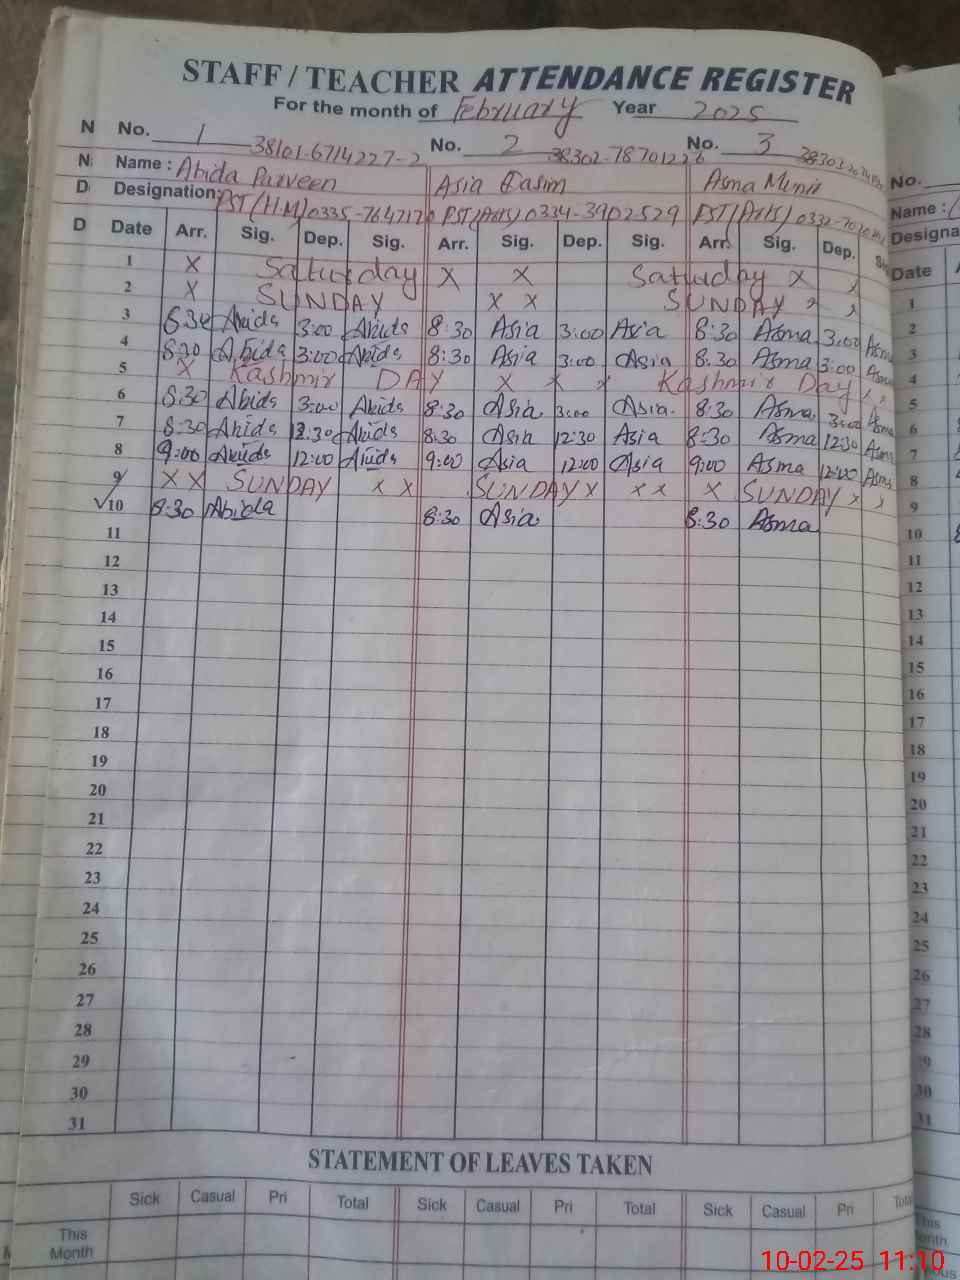 STAFF / TEACHER ATTENDANCE REGISTER
For the month of February Year 2025
N No. 1 38101-6714227-2 No. 2 38302-7870122 No. 3
N Name : Abida Parveen Asia Qasim Asma Munir No.
D Designation: PST (H.M) 0335-7647120 PST (Arts) 0334-3902529 PST (Arts) Name :
D Date Arr. Sig. Dep. Sig. Arr. Sig. Dep. Sig. Arr. Sig. Dep. Designa
Date
1 X Saturday X X Saturday X 1
2 X SUNDAY X X SUNDAY 2
3 8:30 Abida 3:00 Abida 8:30 Asia 3:00 Asia 8:30 Asma 3:00 Asma 3
4 8:30 Abida 3:00 Abida 8:30 Asia 3:00 Asia 8:30 Asma 3:00 Asma 4
5 X Kashmir DAY X X X Kashmir Day 5
6 8:30 Abida 3:00 Abida 8:30 Asia 3:00 Asia 8:30 Asma 3:00 Asma 6
7 8:30 Abida 12:30 Abida 8:30 Asia 12:30 Asia 8:30 Asma 12:30 Asma 7
8 9:00 Abida 12:00 Abida 9:00 Asia 12:00 Asia 9:00 Asma 12:00 Asma 8
9 X X SUNDAY X X SUNDAY X X X X SUNDAY X 9
10 8:30 Abida 8:30 Asia 8:30 Asma 10
11 11
12 12
13 13
14 14
15 15
16 16
17 17
18 18
19 19
20 20
21 21
22 22
23 23
24 24
25 25
26 26
27 27
28 28
29
30 30
31 31
STATEMENT OF LEAVES TAKEN
Sick Casual Pri Total Sick Casual Pri Total Sick Casual Pri
This
Month
10-02-25 11:10